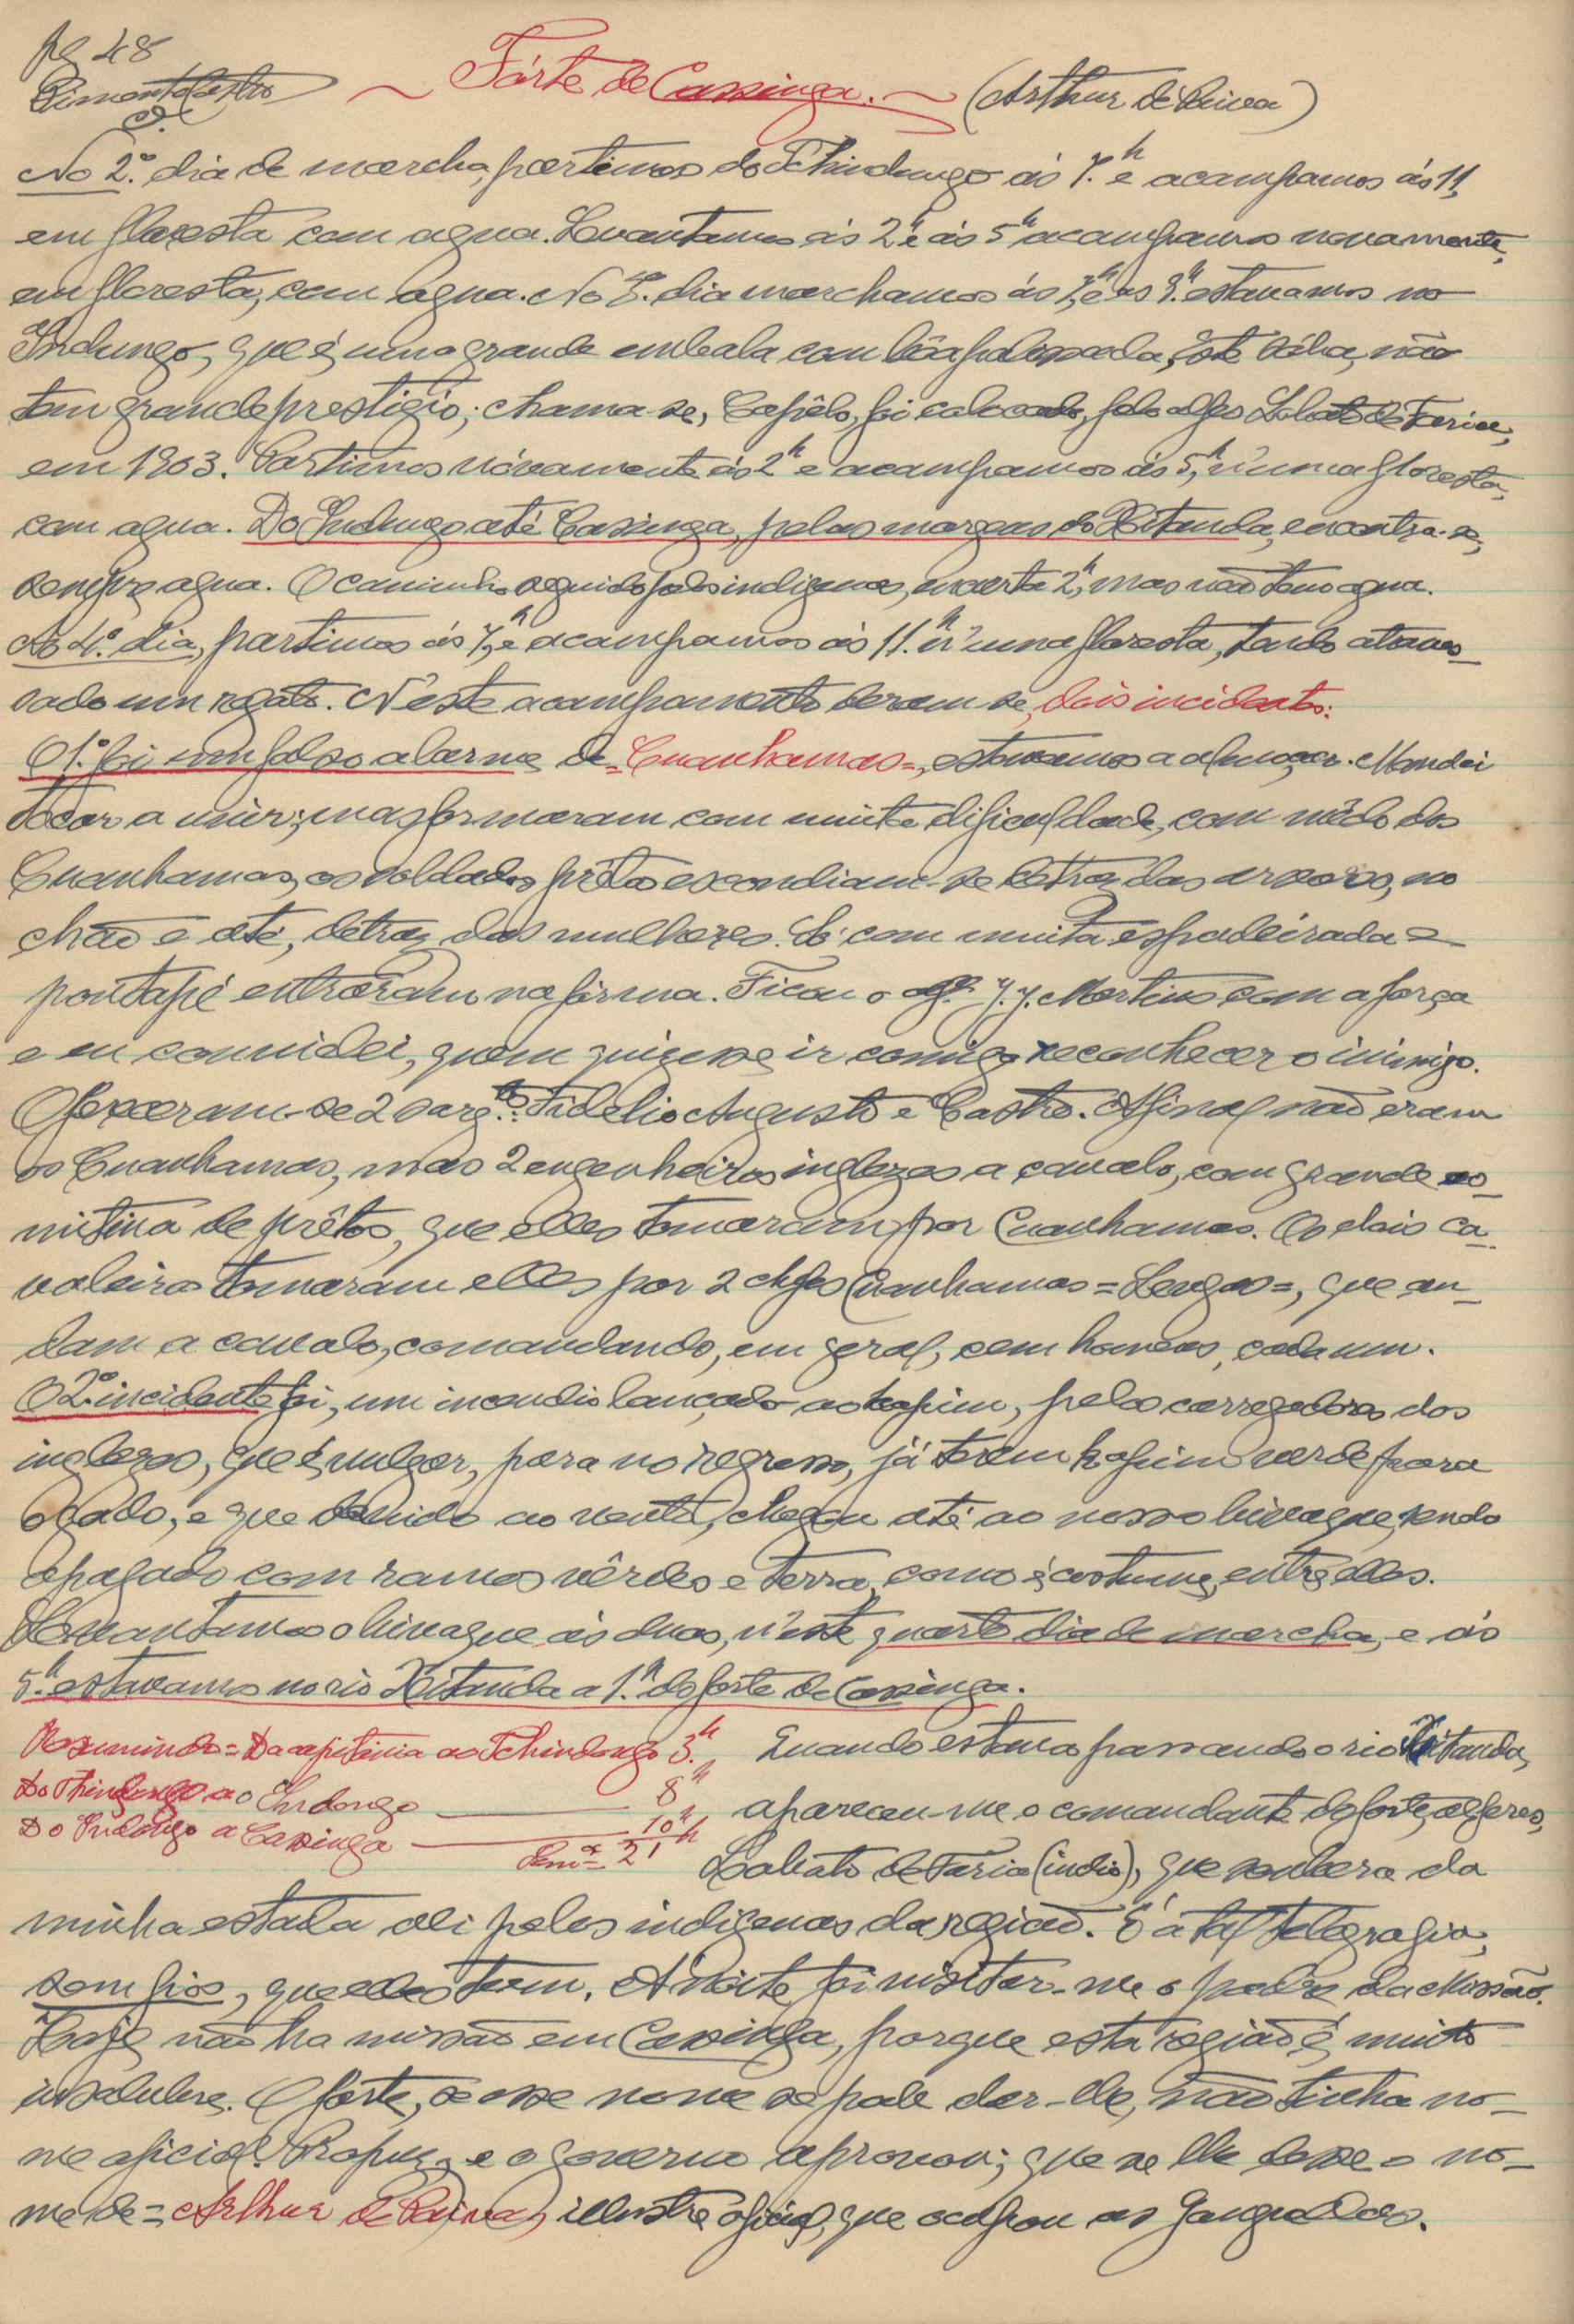 pg 48
Pimenta Castro
~ Fórte de Cassinga. ~ (Arthur de Paiva)
No 2.º dia de marcha, partimos do Tchindungo ás 7.h e acampamos ás 11,
em floresta com agua. Levantamos ás 2h e ás 5h acampamos novamente,
em floresta, com agua. No 3.º dia marchamos ás 7,h e ás 9.h estavamos no
Indungo, que é, uma grande embala com bôa palissada, éste sóba, não
tem grande prestigio; chama-se, Capêlo, foi colocado, pelo alfes Lobato de Faria,
em 1903. Partimos nóvamente ás 2h e acampamos ás 5,h n'uma floresta,
com agua. Do Indungo até Cassinga, pelas margens do Xitanda, encontra-se,
sempre agua. O caminho seguido pelos indigenas, encurta 2,h mas não tem agua.
No 4.º dia, partimos ás 7,h e acampamos ás 11.h n'uma floresta, tendo atraves-
sado um regato. N'este acampamento deram-se, dois incidentes:
O 1.º foi um falso alarme de =Cuanhamas=, estavamos a almoçar. Mandei
tocar a unir; mas formaram com muita dificuldade, com mêdo dos
Cuanhamas, os soldados prêtos escondiam-se detraz das arvores, no
chão e até, détraz das mulheres. Só com muita espadeirada e
pontapé entráram na fórma. Ficou o alf.es J. J. Martins com a força
e eu convidei, quem quizesse ir comigo reconhecer o inimigo.
Ofereceram-se 2 sarg.tos: Fidelio Augusto e Castro. Afinal não eram
os Cuanhamas, mas 2 engenheiros inglezes a cavalo, com grande co-
mitiva de prêtos, que elles tomaram por Cuanhamas. Os dois ca-
valeiros tomaram elles por 2 chefes Cuanhamas =Lengas=, que an-
dam a cavalo, comandando, em geral, cem homens, cada um.
O 2.º incidente foi, um incendio lançado ao kapim, pelos carregadores dos
inglezes, que é, vulgar, para no regresso, já terem kapim verde para
o gado, e que devido ao vento, chegou até ao nosso bivaque, sendo
apagado com ramos vêrdes e terra, como é, costume, entre elles.
Levantamos o bivaque ás duas, n'este quarto dia de marcha, e ás
5.h estavamos no rio Xitanda a 1.h do forte de Cassinga.
Resumindo = Da capitania ao Tchindongo 3.h
Do Tchindongo ao Indongo 8h
Do Indongo a Cassinga 10h
Som.a = 21h
Quando estava passando o rio Xitanda,
apareceu-me o comandante do forte, alferes,
Lobato de Faria (indio), que soubera da
minha estada ali pelos indigenas da região. É a tal telegrafia,
sem fios, que elles teem. Á noite foi visitar-me o padre da Missão.
Hoje, não ha missão em Cassinga, porque esta região é, muito
insalubre. O forte, se esse nome se pode dar-lhe, não tinha no-
me oficial. Propuz, e o governo aprovou; que se lhe désse o no-
me de = Arthur de Paiva, illustre oficial, que ocupou as Ganguellas.